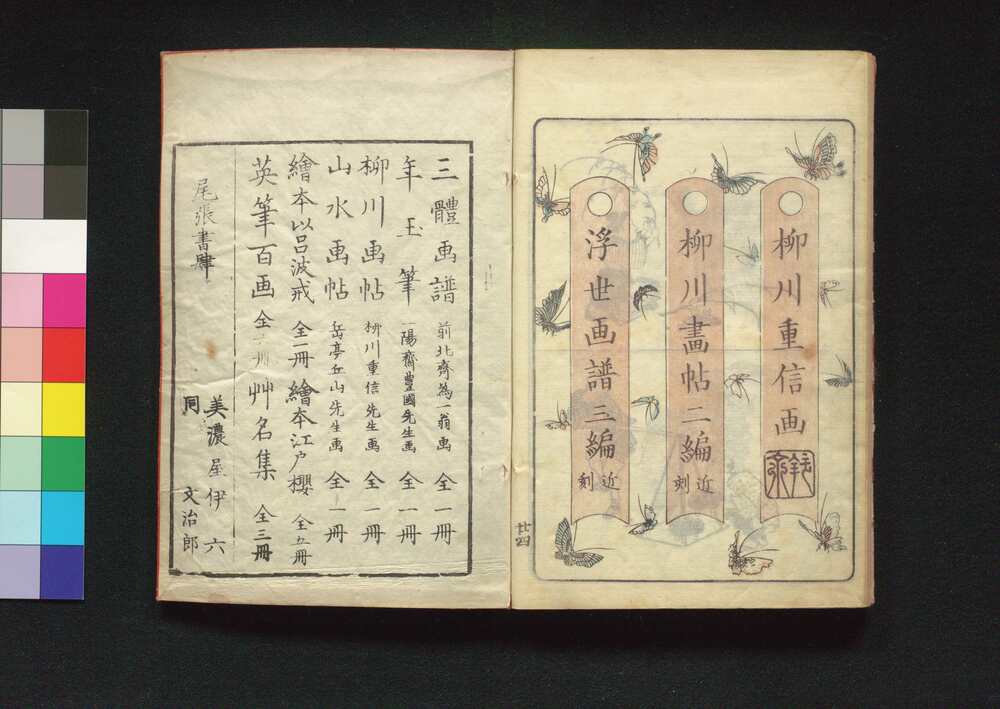 柳川重信画
柳川畵帖二編 近刻
浮世画譜三編 近刻
廿四
三體画譜 前北齋為一翁画 全一冊
年玉筆 一陽齋豊國先生画 全一冊
柳川画帖 柳川重信先生画 全一冊
山水画帖 岳亭丘山先生画 全一冊
繪本以呂波戒 全一冊 繪本江戸櫻 全五冊
英筆百画 全 冊 艸名集 全三冊
尾張書肆
美濃屋伊六
同 文治郎